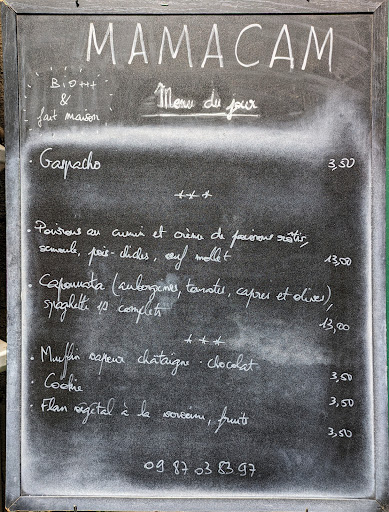 MAMACAM
Bio++
&
fait maison
Menu du jour
• Gaspacho 3,50
+++
• Poivrons au cumin et crème de poivrons rôtis,
semoule, pois-chiches, œuf mollet 13,50
• Caponata (aubergines, tomates, capres et olives),
spaghetti 1/2 complets 13,00
+++
• Muffin vapeur châtaigne - chocolat 3,50
• Cookie 3,50
• Flan végétal à la , fruits 3,50
09 87 03 83 97